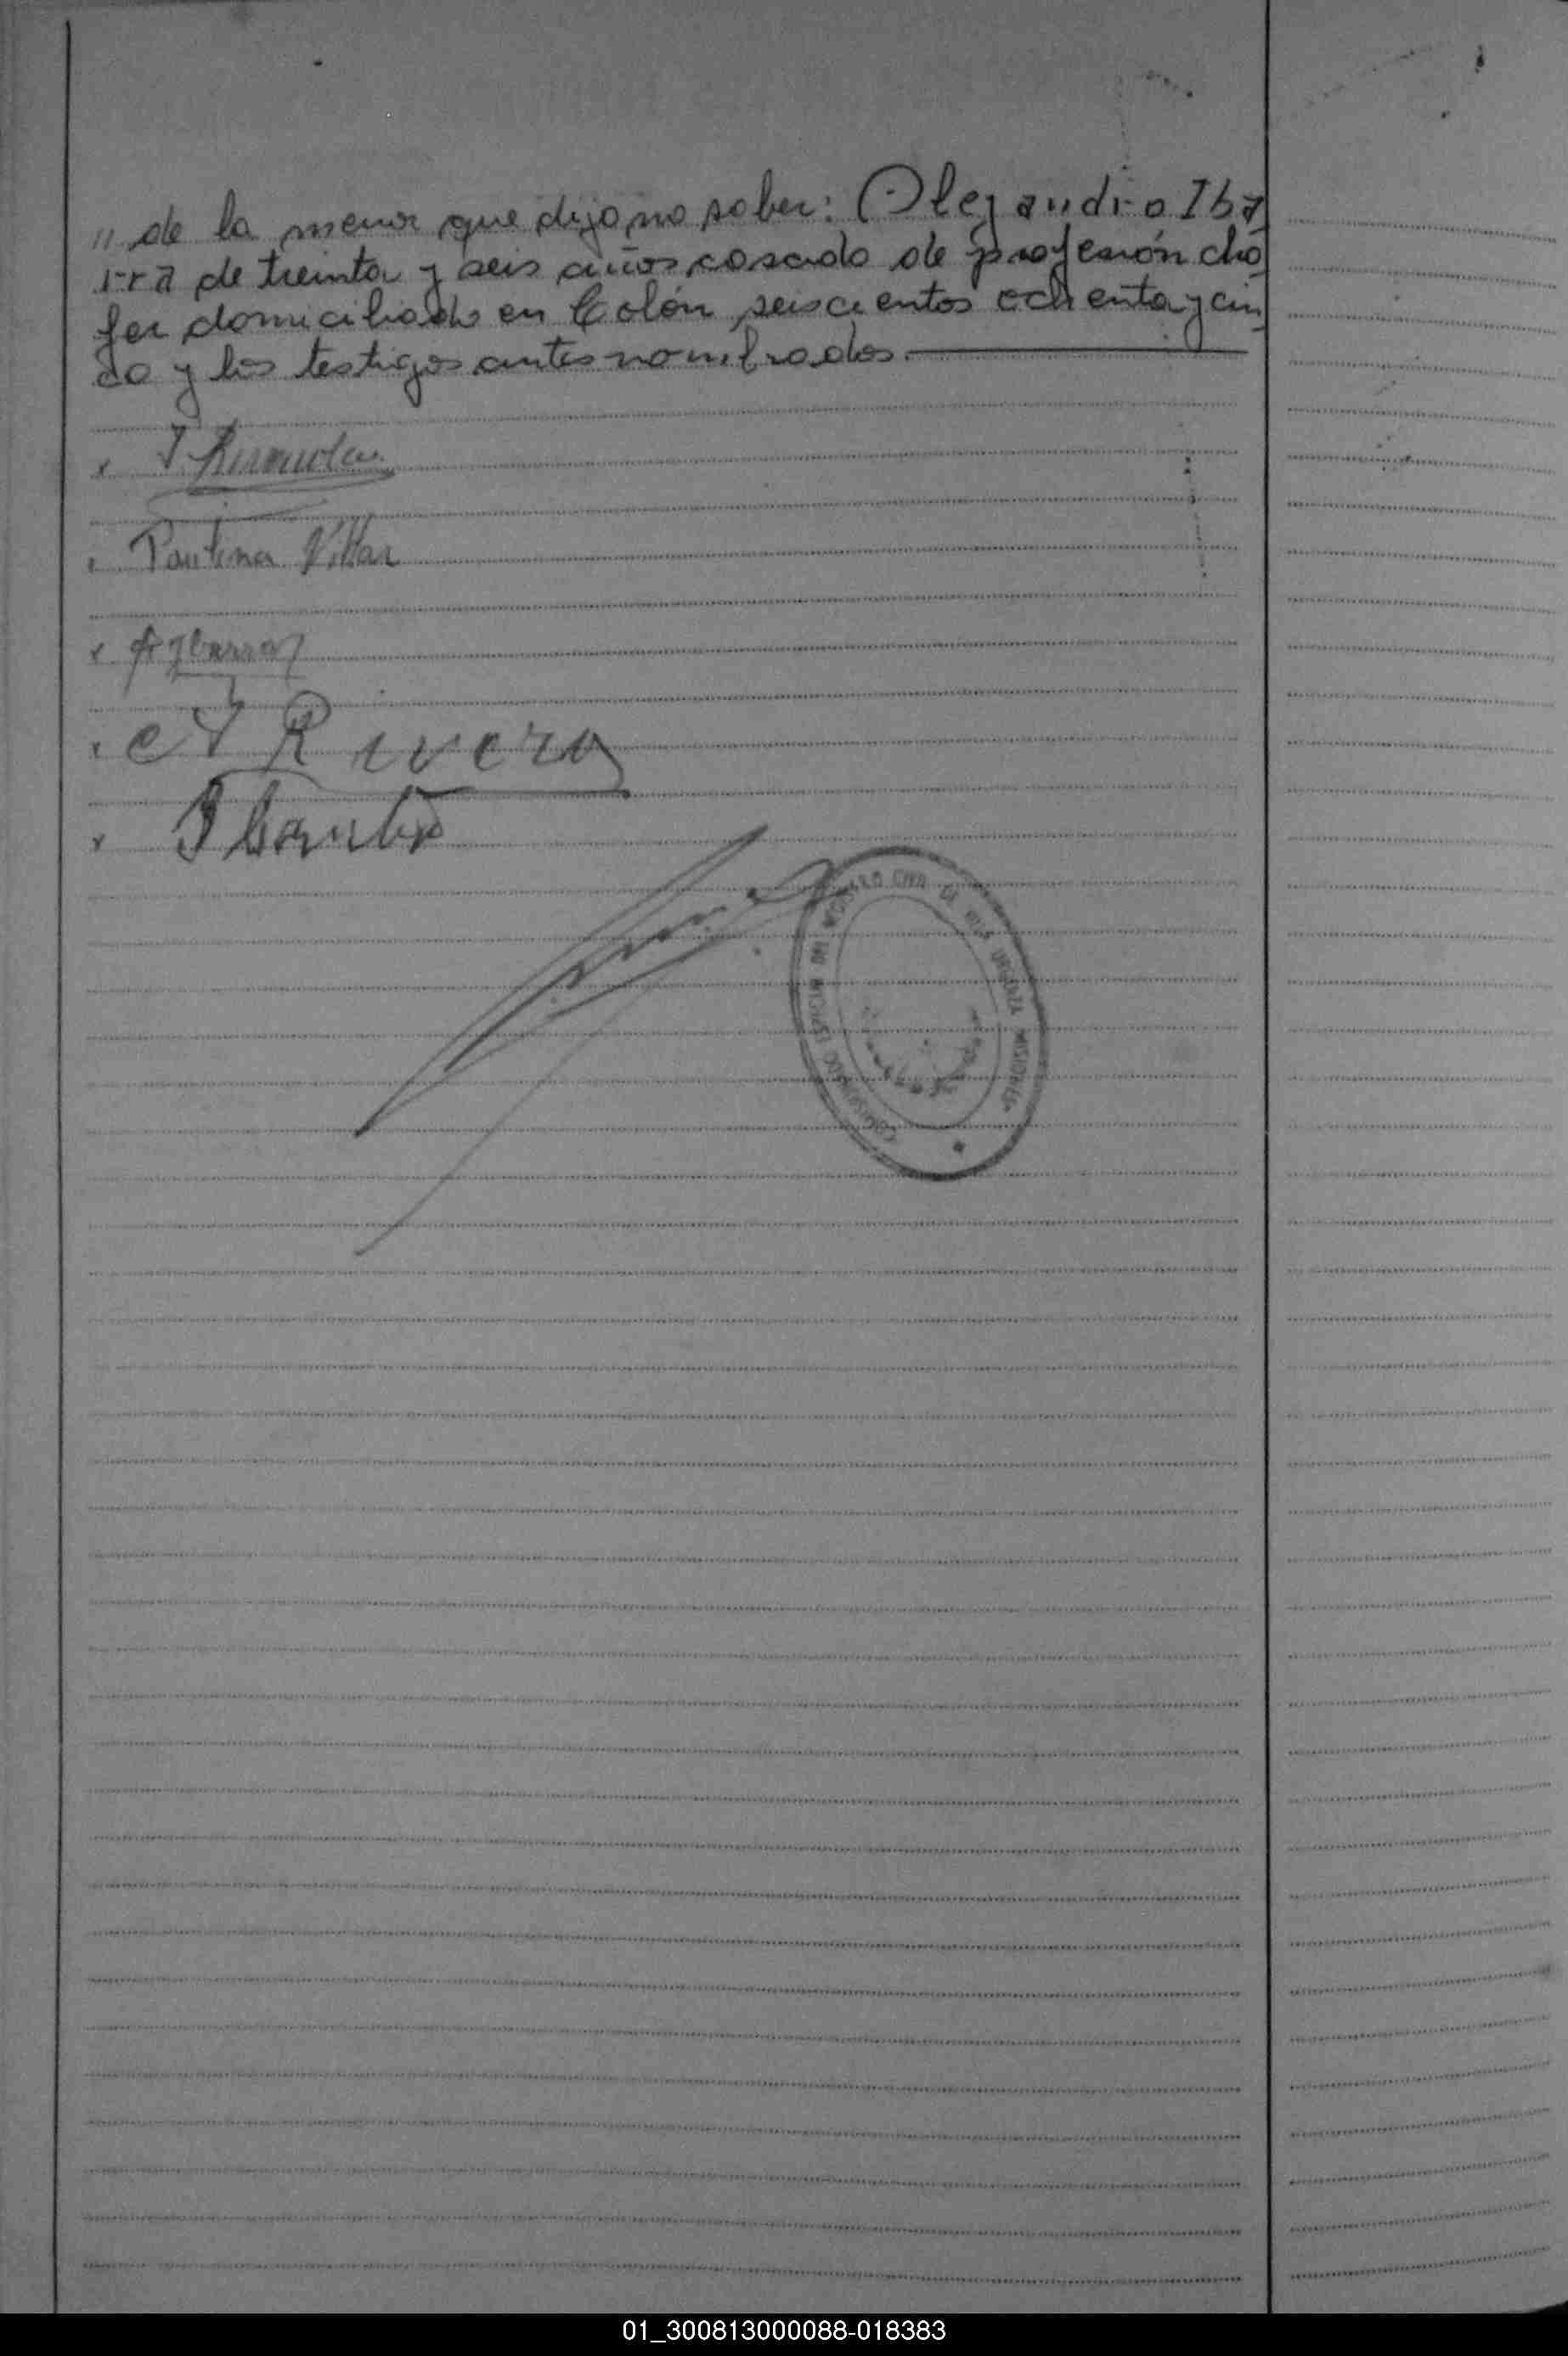 " de la menor que dijo no saber: Olejandro Iba
rra de treinta y seis años casado de profesión cho
fer domiciliado en Colón seiscientos ochenta y cin
co y los testigos antes nombrados.
Paulina Villar
A Ibarra
A Rivero
REGISTRO CIVIL DE
MISIONES
01_300813000088-018383